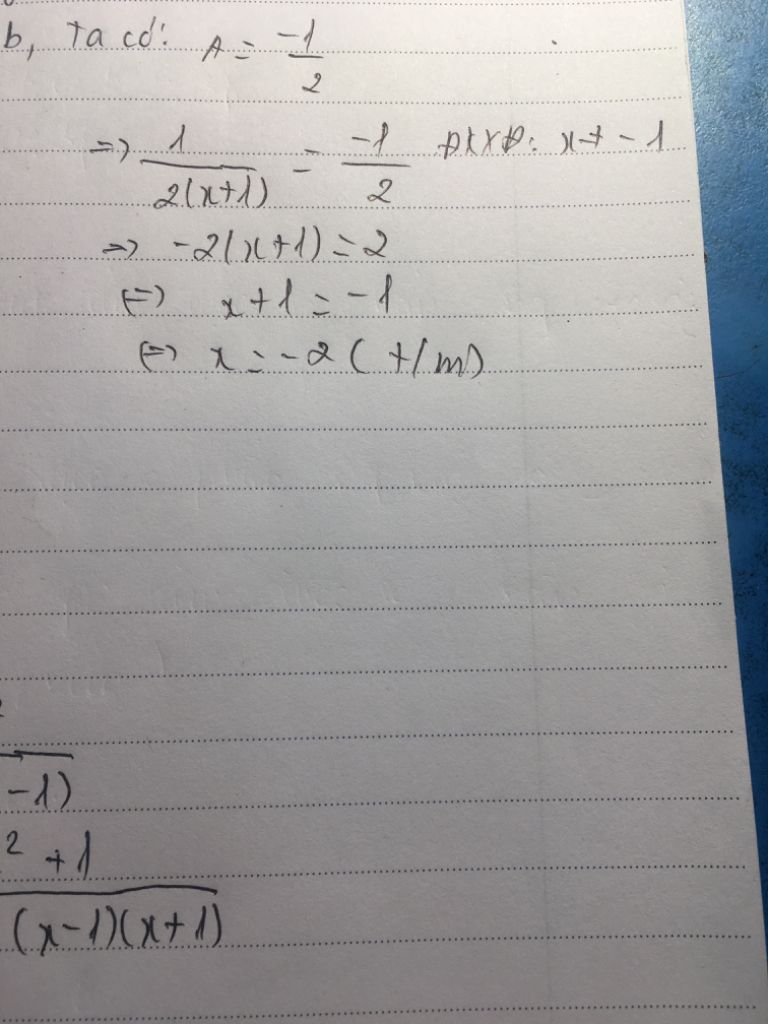 b, Ta có: A = -1/2
=> 1/2(x+1) = -1/2 ĐKXĐ: x ≠ -1
=> -2(x+1) = 2
(=) x+1 = -1
(=) x = -2 (t/m)
-1)
2 + 1
(x-1)(x+1)